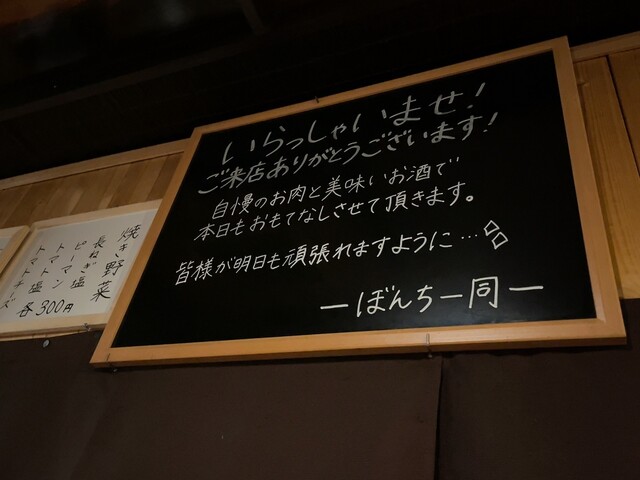 いらっしゃいませ!
ご来店ありがとうございます!
自慢のお肉と美味いお酒で
本日もおもてなしさせて頂きます。
皆様が明日も頑張れますように…
ーぼんち一同ー
焼き野菜
長ねぎ塩
ピーマン
トマト塩
トマトチーズ
各300円